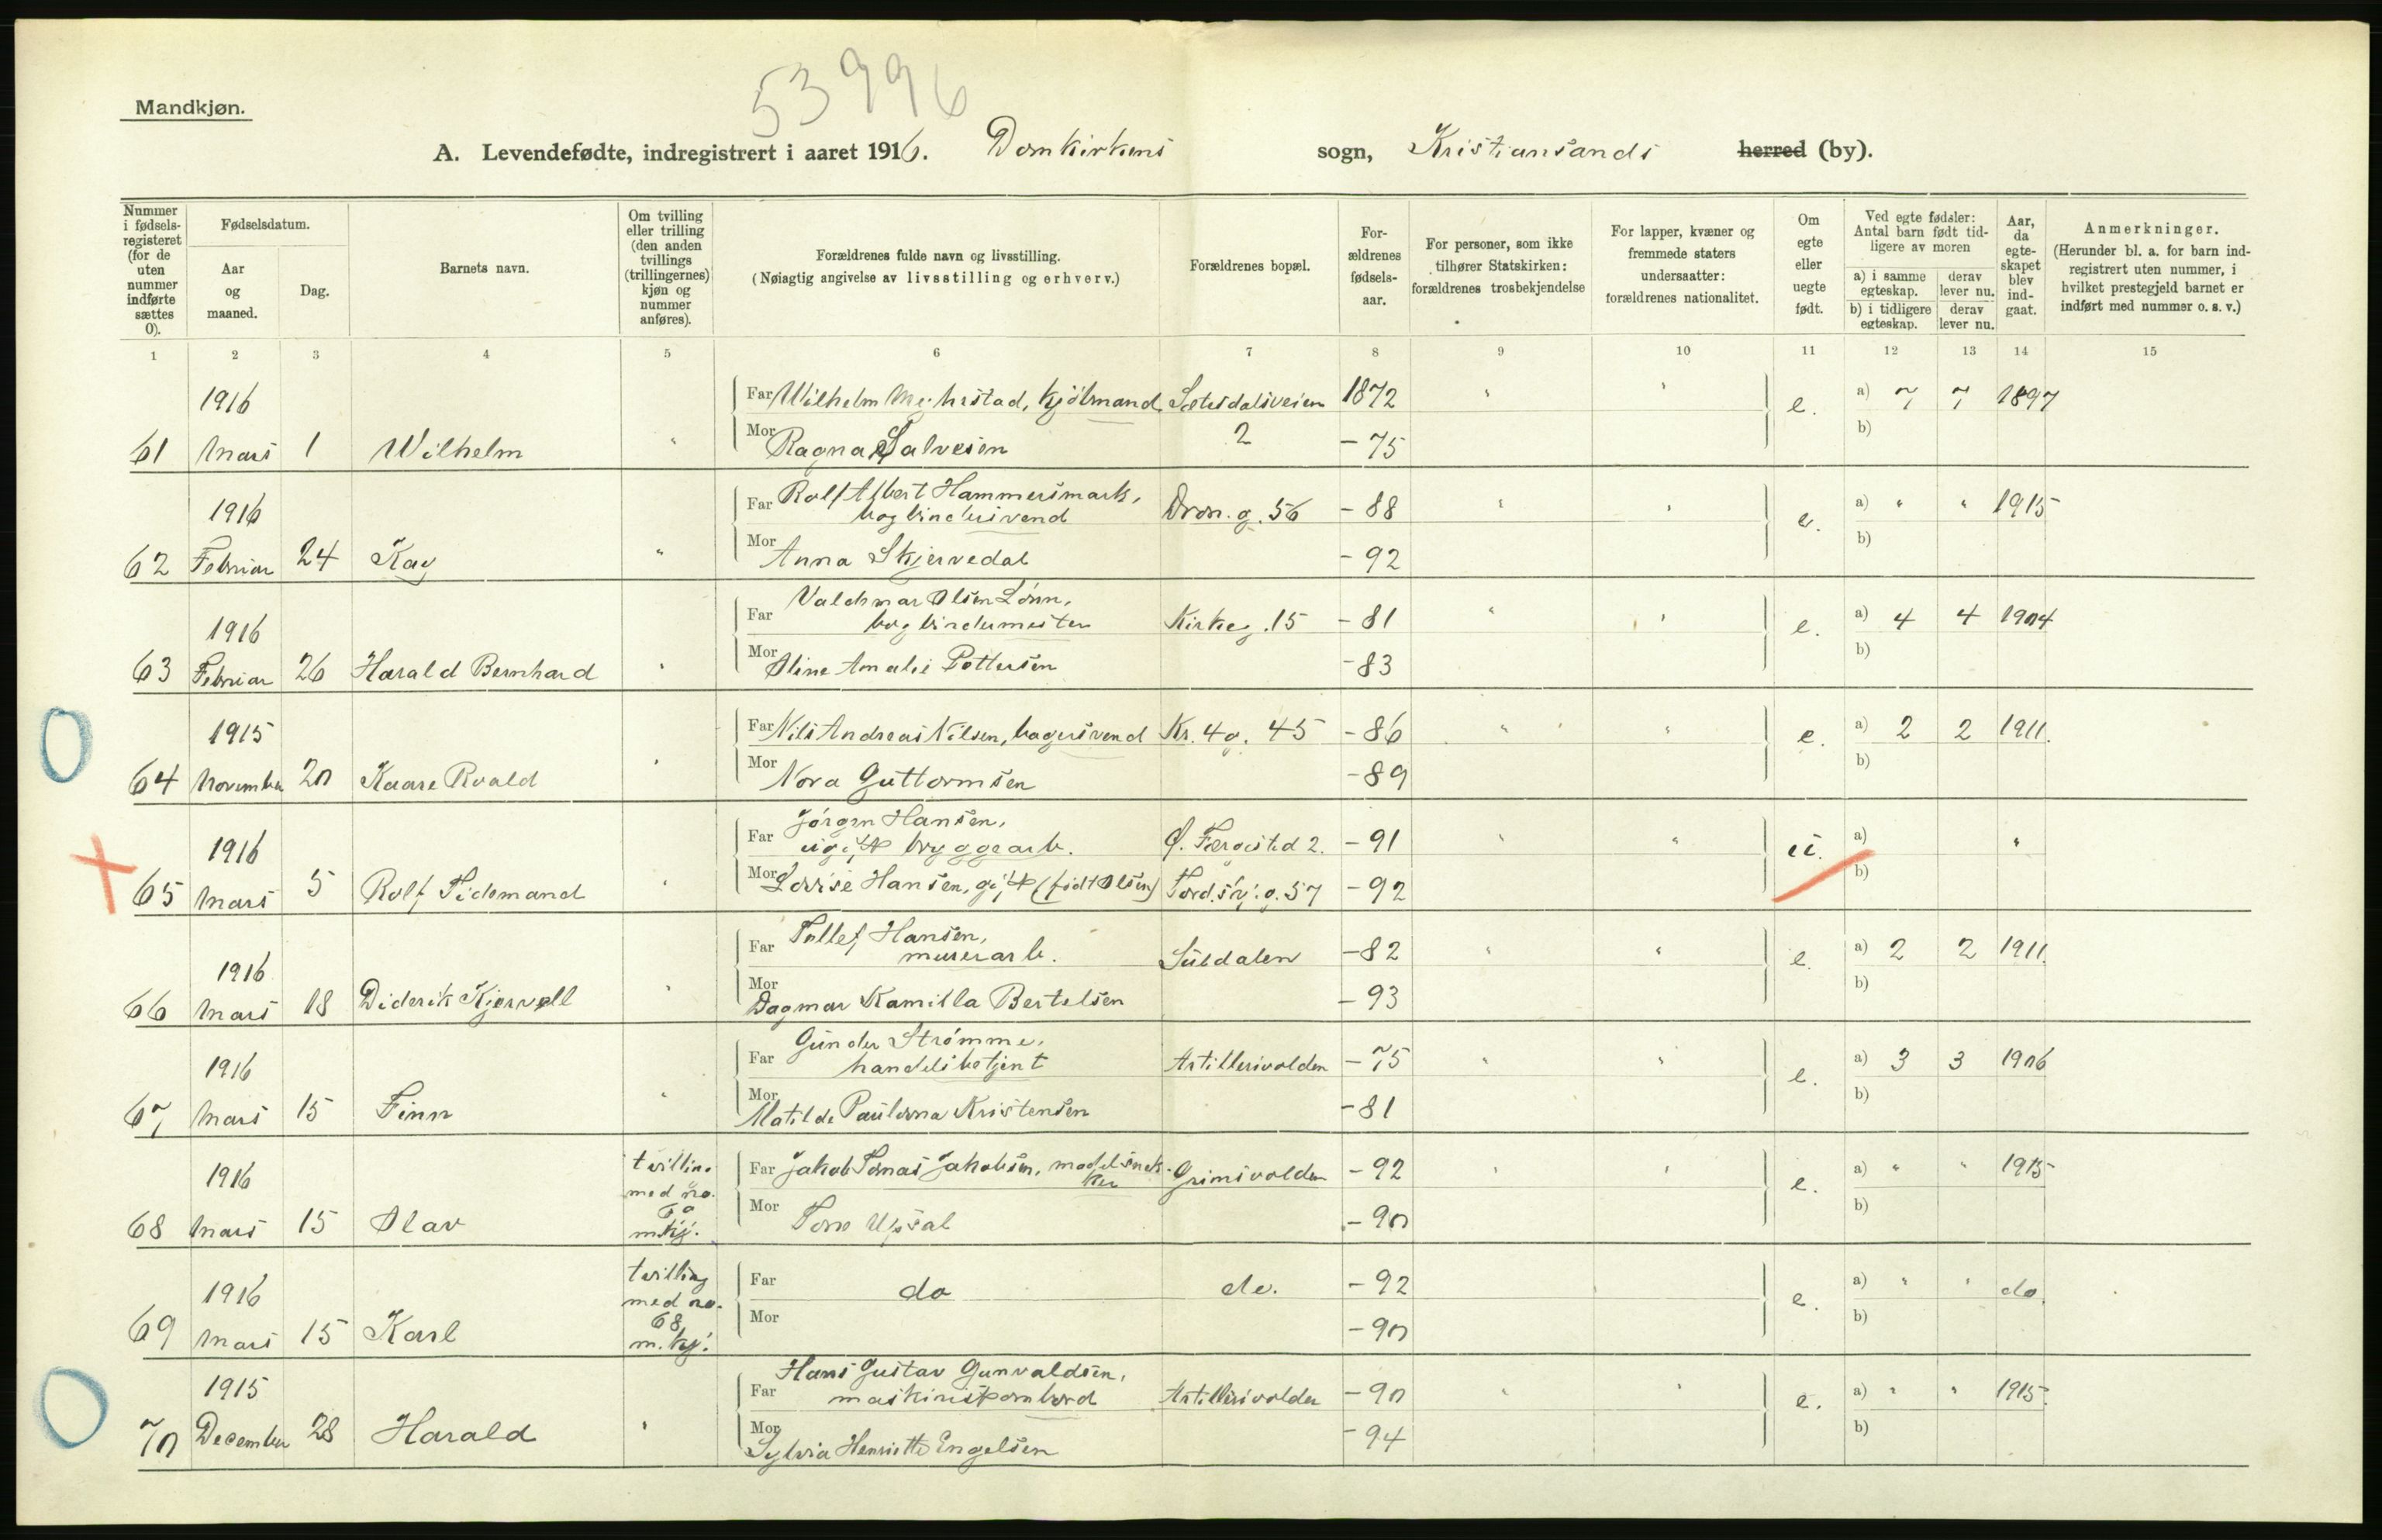 53996
Mandkjøn.
A. Levendefødte, indregistrert i aaret 1916. Domkirkens sogn, Kristiansands herred (by).
Nummer i fødsels-registeret (for de uten nummer indførte sættes 0).
Fødselsdatum.
Aar og maaned.
Dag.
Barnets navn.
Om tvilling eller trilling (den anden tvillings (trillingernes) kjøn og nummer anføres).
Forældrenes fulde navn og livsstilling.
(Nøiagtig angivelse av livsstilling og erhverv.)
Forældrenes bopæl.
For-ældrenes fødsels-aar.
For personer, som ikke tilhører Statskirken: forældrenes trosbekjendelse
For lapper, kvæner og fremmede staters undersaatter: forældrenes nationalitet.
Om egte eller uegte født.
Ved egte fødsler: Antal barn født tid-ligere av moren
a) i samme egteskap. derav lever nu.
b) i tidligere egteskap. derav lever nu.
Aar, da egte-skapet blev ind-gaat.
Anmerkninger.
(Herunder bl. a. for barn ind-registrert uten nummer, i hvilket prestegjeld barnet er indført med nummer o. s. v.)
1 2 3 4 5 6 7 8 9 10 11 12 13 14 15
1916 Far Wilhelm kjølmand, Sætesdalsveien 1872 " " e. a) 7 7 1897
61 Mars 1 Wilhelm " Mor Ragna Salvesen 2 - 75 b)
1916 Far Rolf Albert Hammersmark, bogbindersvend Dron. g. 56 - 88 " " e. a) " " 1915
62 Februar 24 Kay " Mor Anna Skjervedal - 92 b)
1916 Far Valdemar Olsen Lønn, bogbindermester Kirkeg. 15 - 81 " " e. a) 4 4 1904
63 Februar 26 Harald Bernhard " Mor Oline Amalie Pettersen - 83 b)
1915 Far Nils Andreas Nilsen, bagersvend Kr. 4 g. 45 - 86 " " e. a) 2 2 1911.
64 November 20 Kaare Roald " Mor Nora Guttormsen - 89 b)
1916 Far Jørgen Hansen, ugift bryggearb. Ø. Færgested 2. - 91 " " u. a) "
65 Mars 5 Rolf Tidemand " Mor Lovise Hansen, gift (født Olsen) Tord.skj.g. 57 - 92 b)
1916 Far Tellef Hansen, murerarb. Suldalen - 82 " " e. a) 2 2 1911.
66 Mars 18 Diderik Kjervell " Mor Dagmar Kamilla Bertelsen - 93 b)
1916 Far Gunder Strømme, handelsbetjent Artillerivolden - 75 " " e. a) 3 3 1906
67 Mars 15 Finn " Mor Matilde Paulena Kristensen - 81 b)
1916 tvilling med no. 69 m.kj. Far Jakob Tomas Jakobsen, modelsnekker Grimsvolden - 92 " " e. a) " " 1915
68 Mars 15 Olav Mor Tone Upsal - 90 b)
1916 tvilling med no. 68, m.kj. Far do do. - 92 e. a) " " do.
69 Mars 15 Karl Mor - 90 b)
1915 Far Hans Gustav Gunvaldsen, maskinist ombord Artillerivolden - 90 " " e. a) " " 1915.
70 December 28 Harald " Mor Sylvia Henriette Engelsen - 94 b)